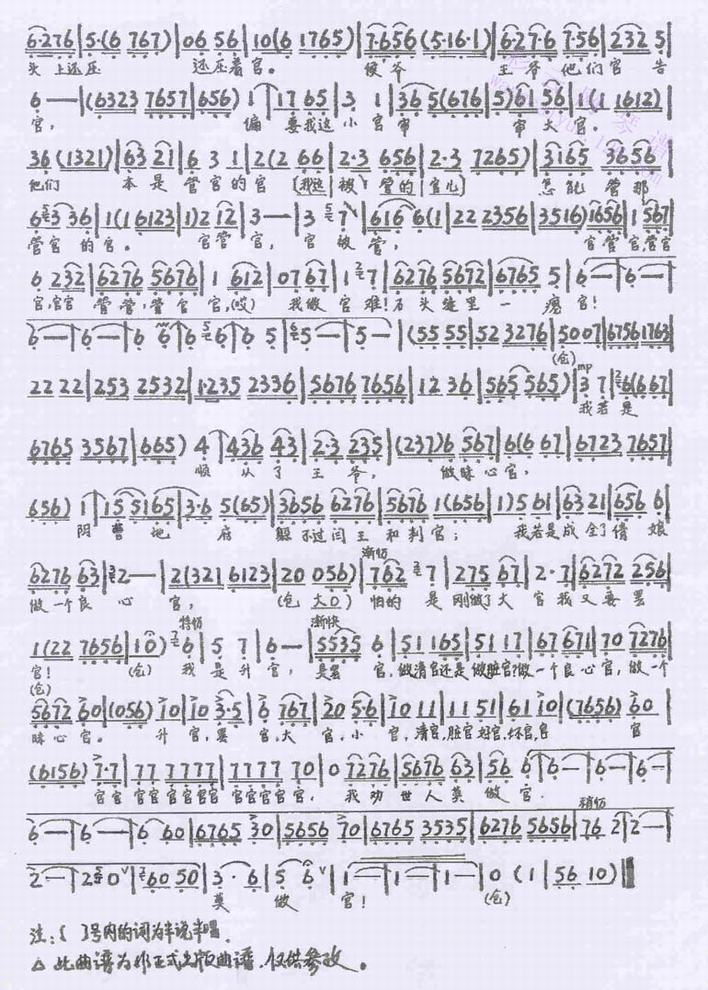 6·276|5·(6 767)|06 56|10(6 1765)|7·656(5·16·1)|6·27·6 7·56|232 5|
头上还压 还压着官。 侯爷 王爷他们官告
6 —|(6323 7657|656) 1|17 65|3 1|36 5(676|5)61 56|1(1 1612)|
官, 偏 要我这小官审 审大官。
36(1321)|63 21|6 3 1|2(2 66|2·3 656|2·3 7265)|3165 3656|
他们 本是管官的官 [我这|被|管的|官儿] 怎能管那
6 3 36|1(1 6123|1)2 12|3 —|3 7|616 6(1|22 2356|3516)1656|1 567|
管官的官。 官管官, 官被管, 官管官,管官
6 232|6276 5676|1 612|07 67|1 7|6276 5672|6765 5|6 —|6 —|
官,官官 管管,管官官,(哎) 我做官难!石头缝里一 官!
6 —|6 —|6 6|6 6|6 5|5 —|5 —|(55 55|52 3276|5007|6756 1763|
(仓)
22 22|253 2532|1·235 2336|5676 7656|12 36|565 565)|3 7|6(667|
mp
我若是
6765 3567|665) 4|436 43|2·3 235|(237)6 567|6(6 67|6723 7657|
顺从了王爷, 做昧心官,
656) 1|15 5165|3·6 5(65)|3656 6276|5676 1(656|1)5 61|63 21|656 6|
阴曹地府 躲不过闫王和判官; 我若是成全了倩娘
6276 63|2 —|2(321 6123|20 056)|762 7|275 67|2·7|6272 256|
渐忉
做一个良心官, (仓 大0) 怕的是刚做了大官我又要罢
1(22 7656|10) 6|5 7|6 —|5535 6|51 165|51 17|67 671|70 7276|
特忉 渐快
官! (仓) 我是升官, 是罢官,做清官还是做脏官?做一个良心官,做一个
(仓)
5672 60|(056) 10|10 3·5|6 767|20 5·6|10 11|11 51|61 10|(7656) 60|
昧心官。 升官,罢官,大官,小官,清官,脏官 ,坏官,官 官
(6156) 7·7|77 7777|7777 70|0 7276|5676 63|56 6|6 —|6 —|6 —|
官官 官官官官官官 官官官官官, 我劝世人莫做官.
6 —|6 —|6 60|6765 30|5656 70|6765 3535|6276 5656|76 2|2 —|
稍忉
2 —|2 0|60 50|3·6|5 6|1 —|1 —|1 —|0 (1|56 10)|
莫做官! (仓)
注:[ ]号内的词为半说半唱.
△此曲谱为非正式出版曲谱.仅供参改。